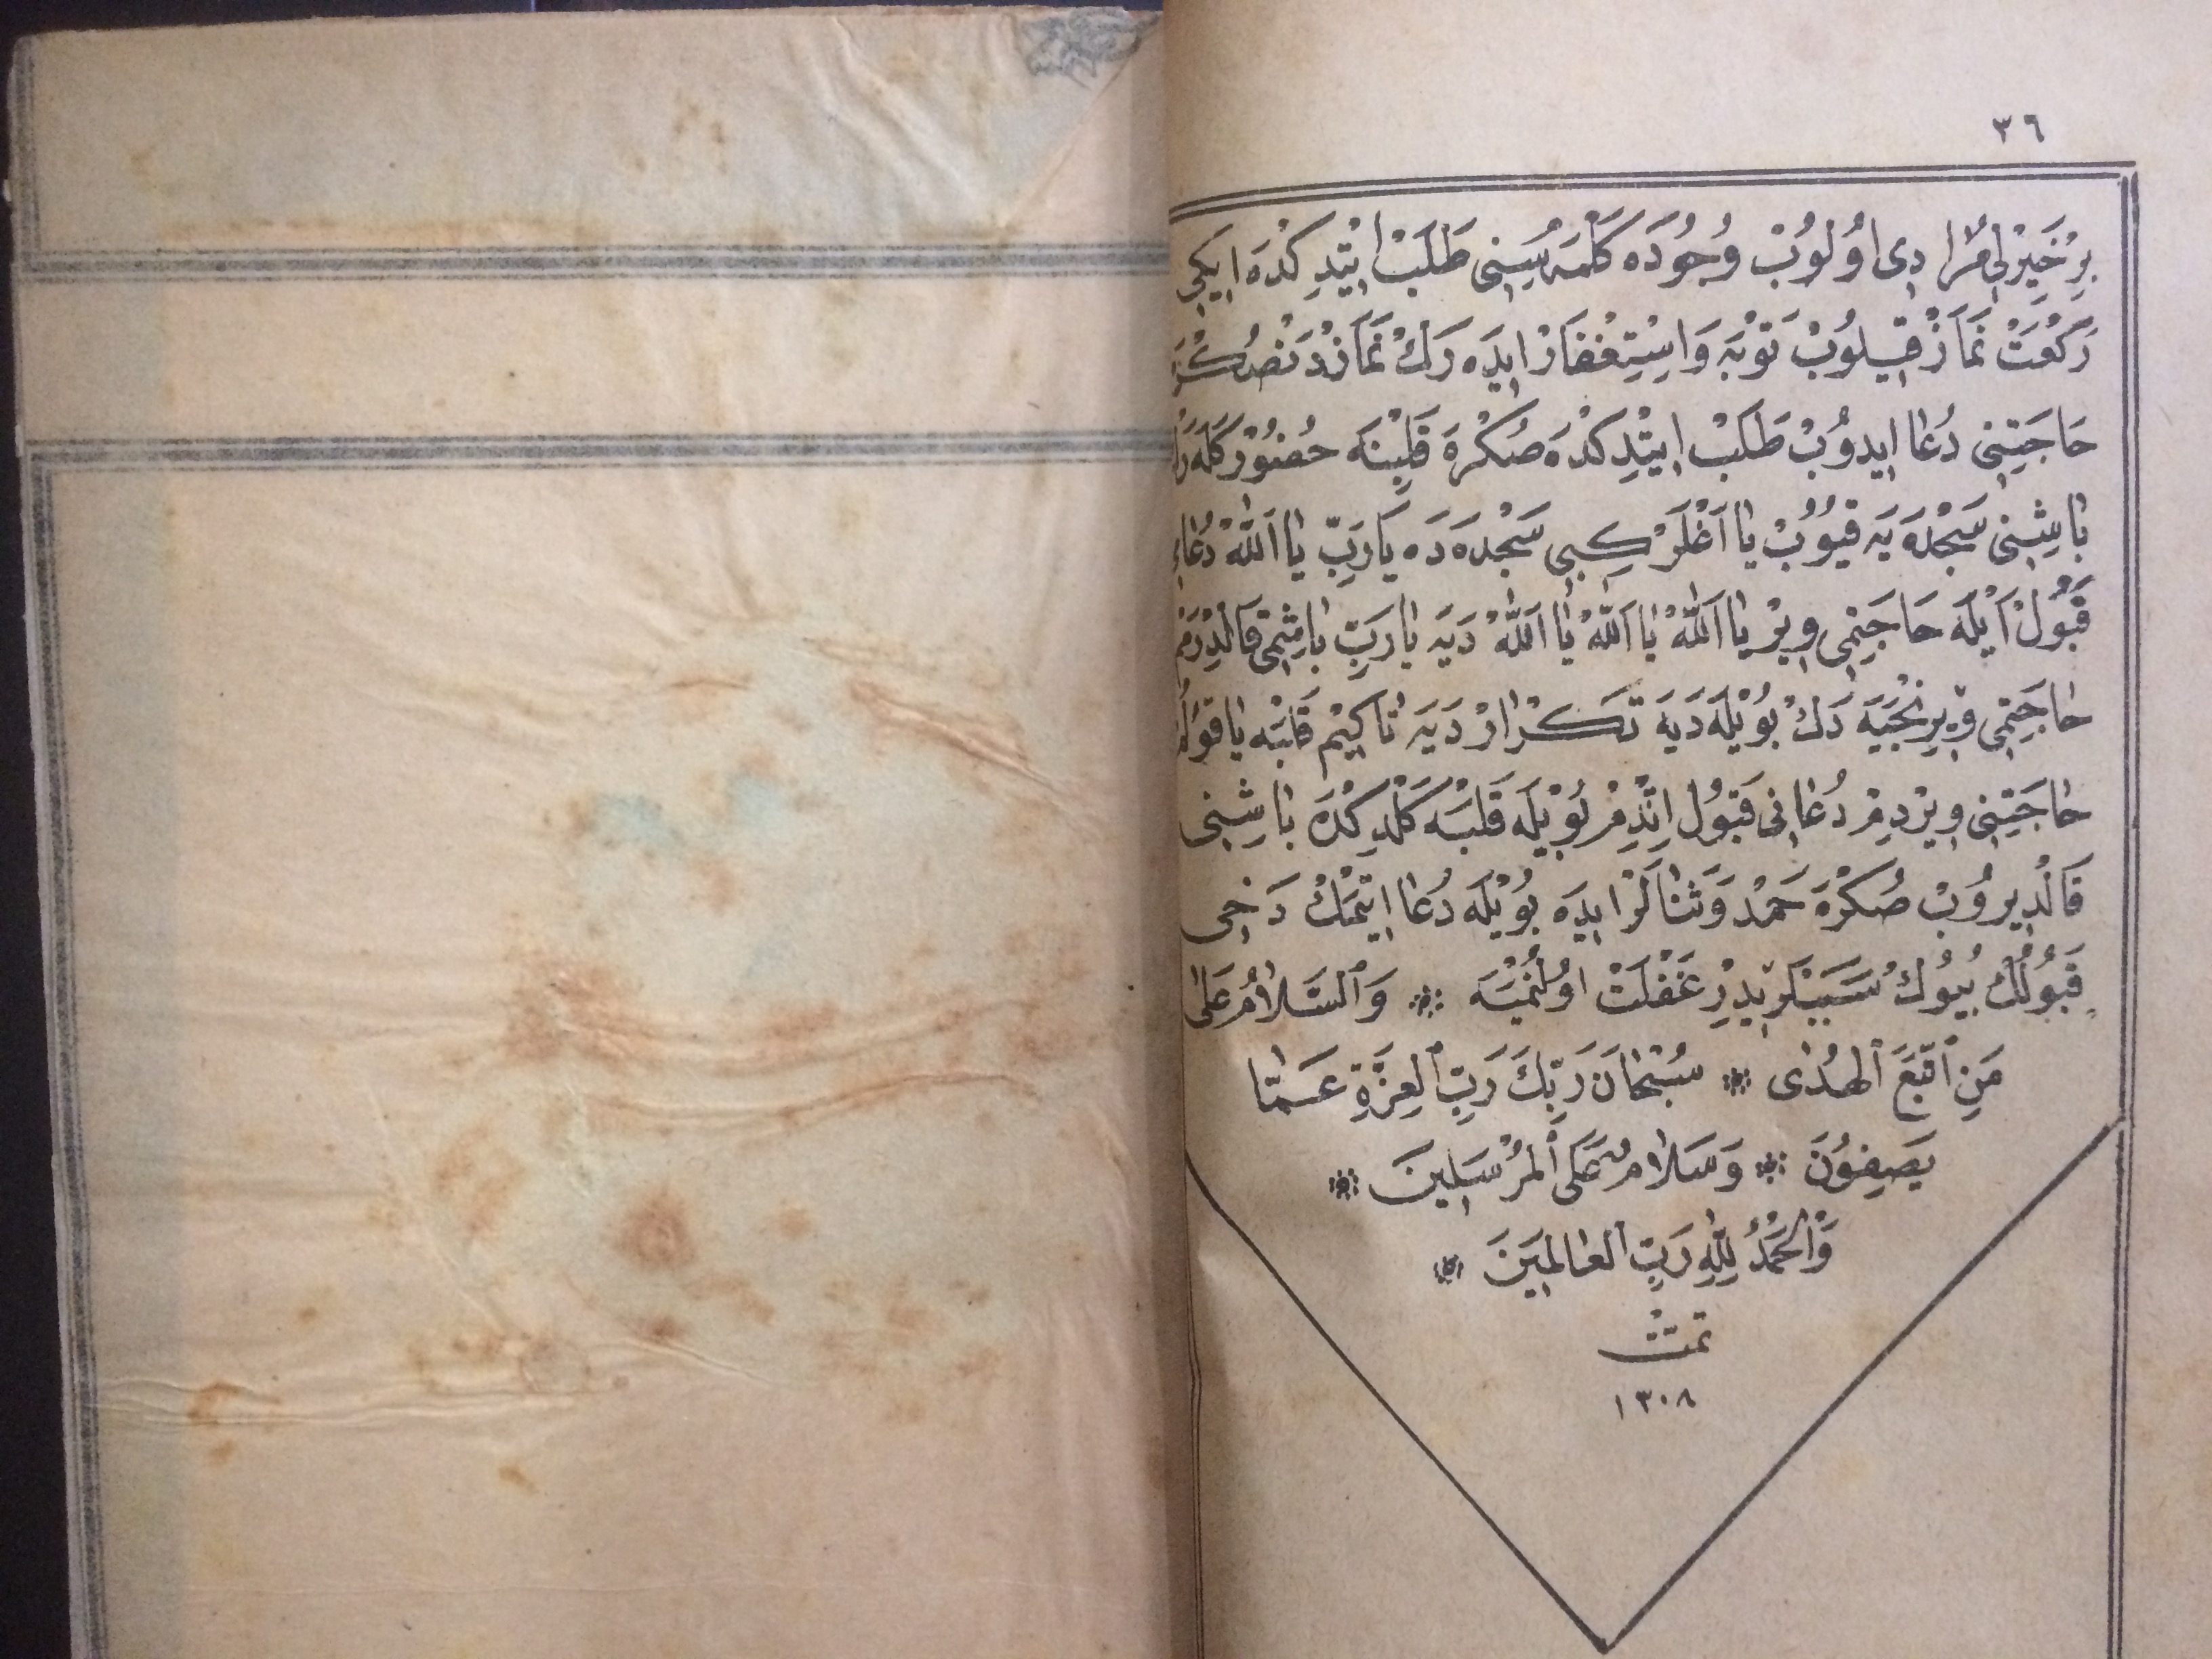 ٣٦
بِرْ خَيِرْلِى مُرَا دِى اوُلوُبْ وُجُودَه كَلْمَه سِنِى طَلَبْ ايْتِدِكْدَه ايكِى
رَكْعَتْ نَمَازْ قِيلوُبْ تَوْبَه وَاسِتِغْفَارْ ايدَه رَكْ نَمَازْدَنْصُكْرَه
حَاجَتِنِى دُعَا ايدوُبْ طَلَبْ ايتْدِكْدَه صُكْرَه قَلْبِنَه حُضُورْ كَلَه
بَاشِنِى سَجْدَه يَه قيُوُبْ يا اَغْلَرْ كِبِى سَجْدَه دَه يَارَبِّ يَا اَللّٰهْ
قَبُولْ اَيْلَه حَاجَتِمِى وِيرْ يَا اَللّٰهْ يَا اَللّٰهْ يَا اَللّٰهْ دَيَه يَارَبِّ بَاشِمِى
حَاجَتِمِى وِيرِنْجَيَه دَكْ بُويْلَه دَيَه تَكْرَارْ دَيَه تَاكِيمْ قَلْبَه
حَاجَتِنِى وِيرْدِمْ دُعَانِى قَبُولْ اِتْدِمْ بُويْلَه قَلْبَه كَلْدِكْدَه بَاشِنِى
قَالْدِيروُبْ صُكْرَه حَمْدْ وَثَنَالَرْ ايدَه بُويْلَه دُعَا ايتْمَكْ دَخِى
قَبُولُكْ بُيُوكْ سَبَبْلَرِيدِرْ غَفْلَتْ اوُلُنْمَيَه ۞ وَالسَّلَامُ عَلٰى
مَنِ اتَّبَعَ الْهُدٰى ۞ سُبْحَانَ رَبِّكَ رَبِّ الْعِزَّةِ عَمَّا
يَصِفُونَ ۞ وَسَلَامٌ عَلَى الْمُرْسَلِينَ ۞
وَالْحَمْدُ لِلّٰهِ رَبِّ الْعَالَمِينَ ۞
تمت
١٣٠٨